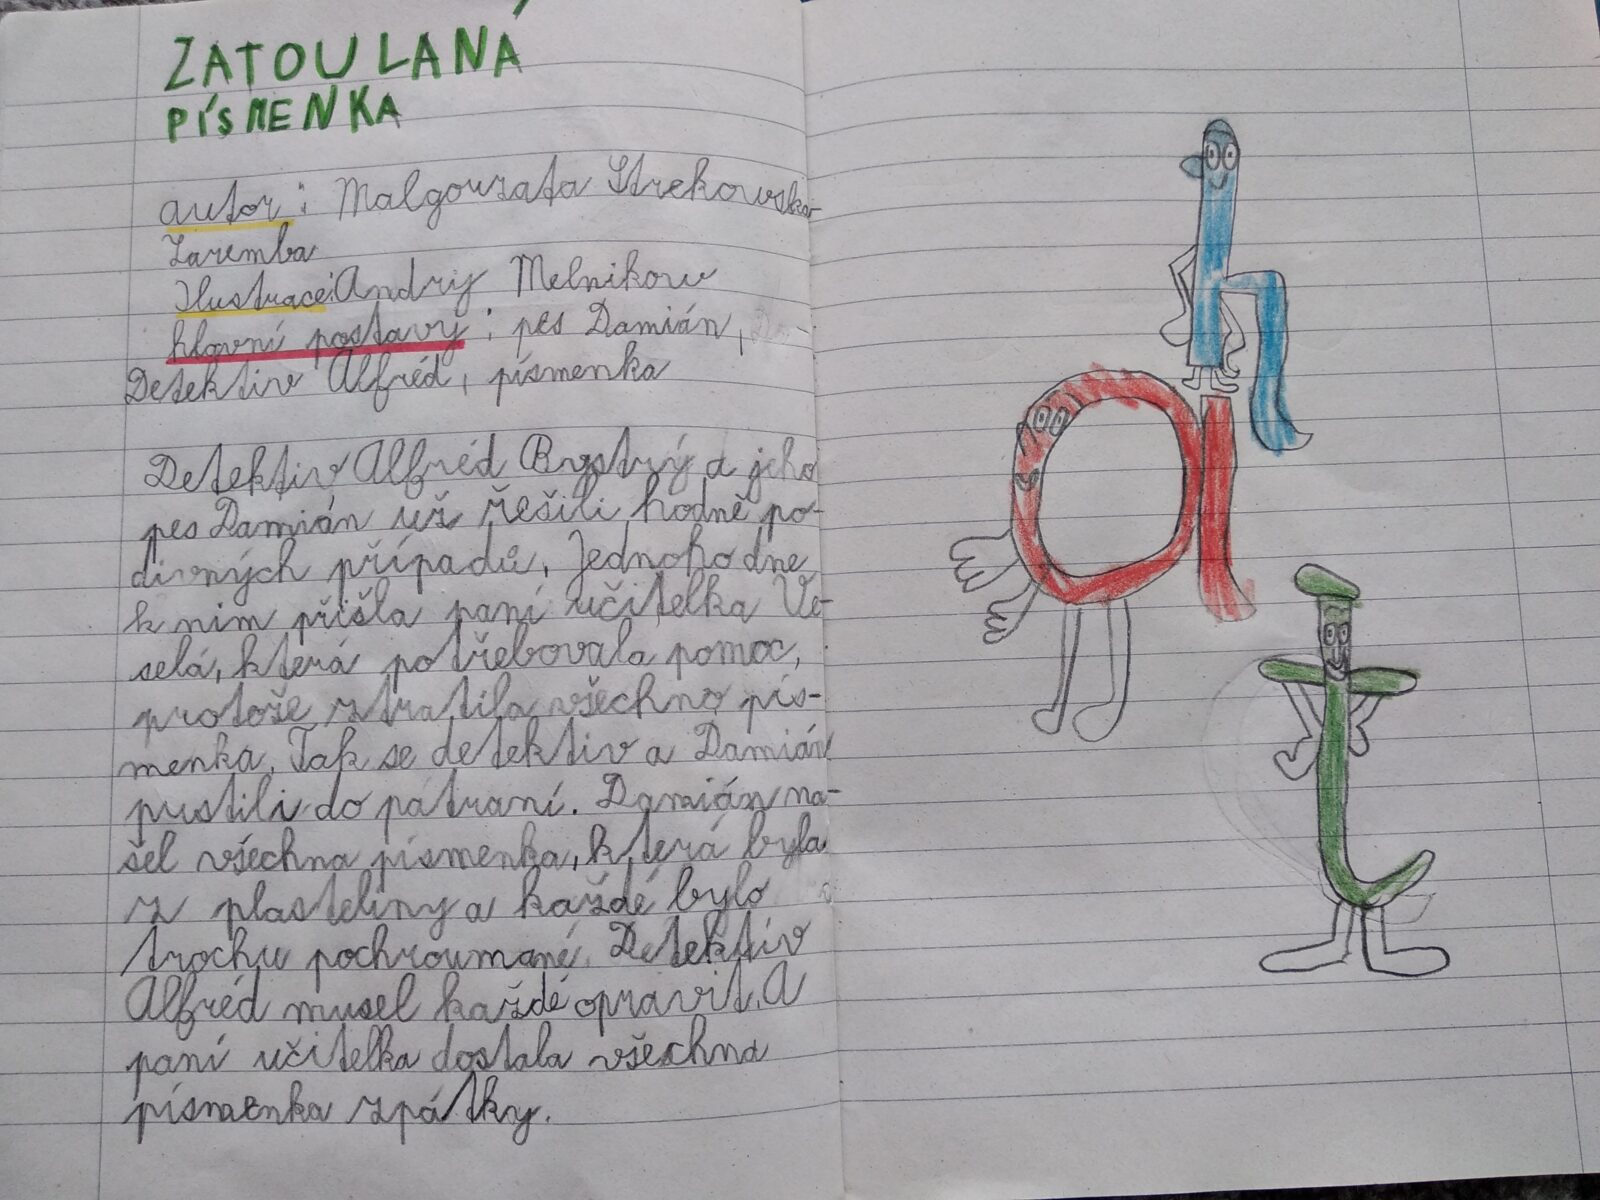 ZATOULANÁ
PÍSMENKA
autor: Malgourzata Strekowska-
Zaremba
Ilustrace: Andrij Melnikow
hlavní postavy: pes Damián,
Detektiv Alfréd, písmenka
Detektiv Alfréd Bystrý a jeho
pes Damián už řešili hodně po-
divných případů. Jednoho dne
k nim přišla paní učitelka Ve-
selá, která potřebovala pomoc,
protože ztratila všechno pís-
menka. Tak se detektiv a Damián
pustili do pátraní. Damián na-
šel všechna písmenka, která byla
z plasteliny a každé bylo
trochu pochroumané. Detektiv
Alfréd musel každé opravit. A
paní učitelka dostala všechna
písmenka zpátky.